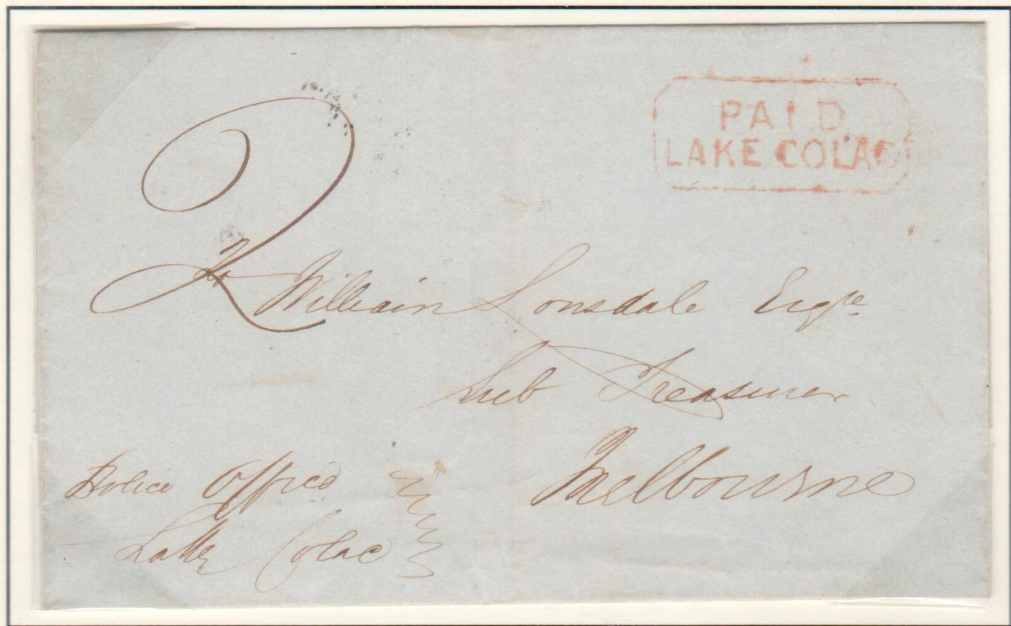 PAID
LAKE COLAC
2
To William Lonsdale Esqre
Sub Treasurer
Melbourne
Police Office
Lake Colac